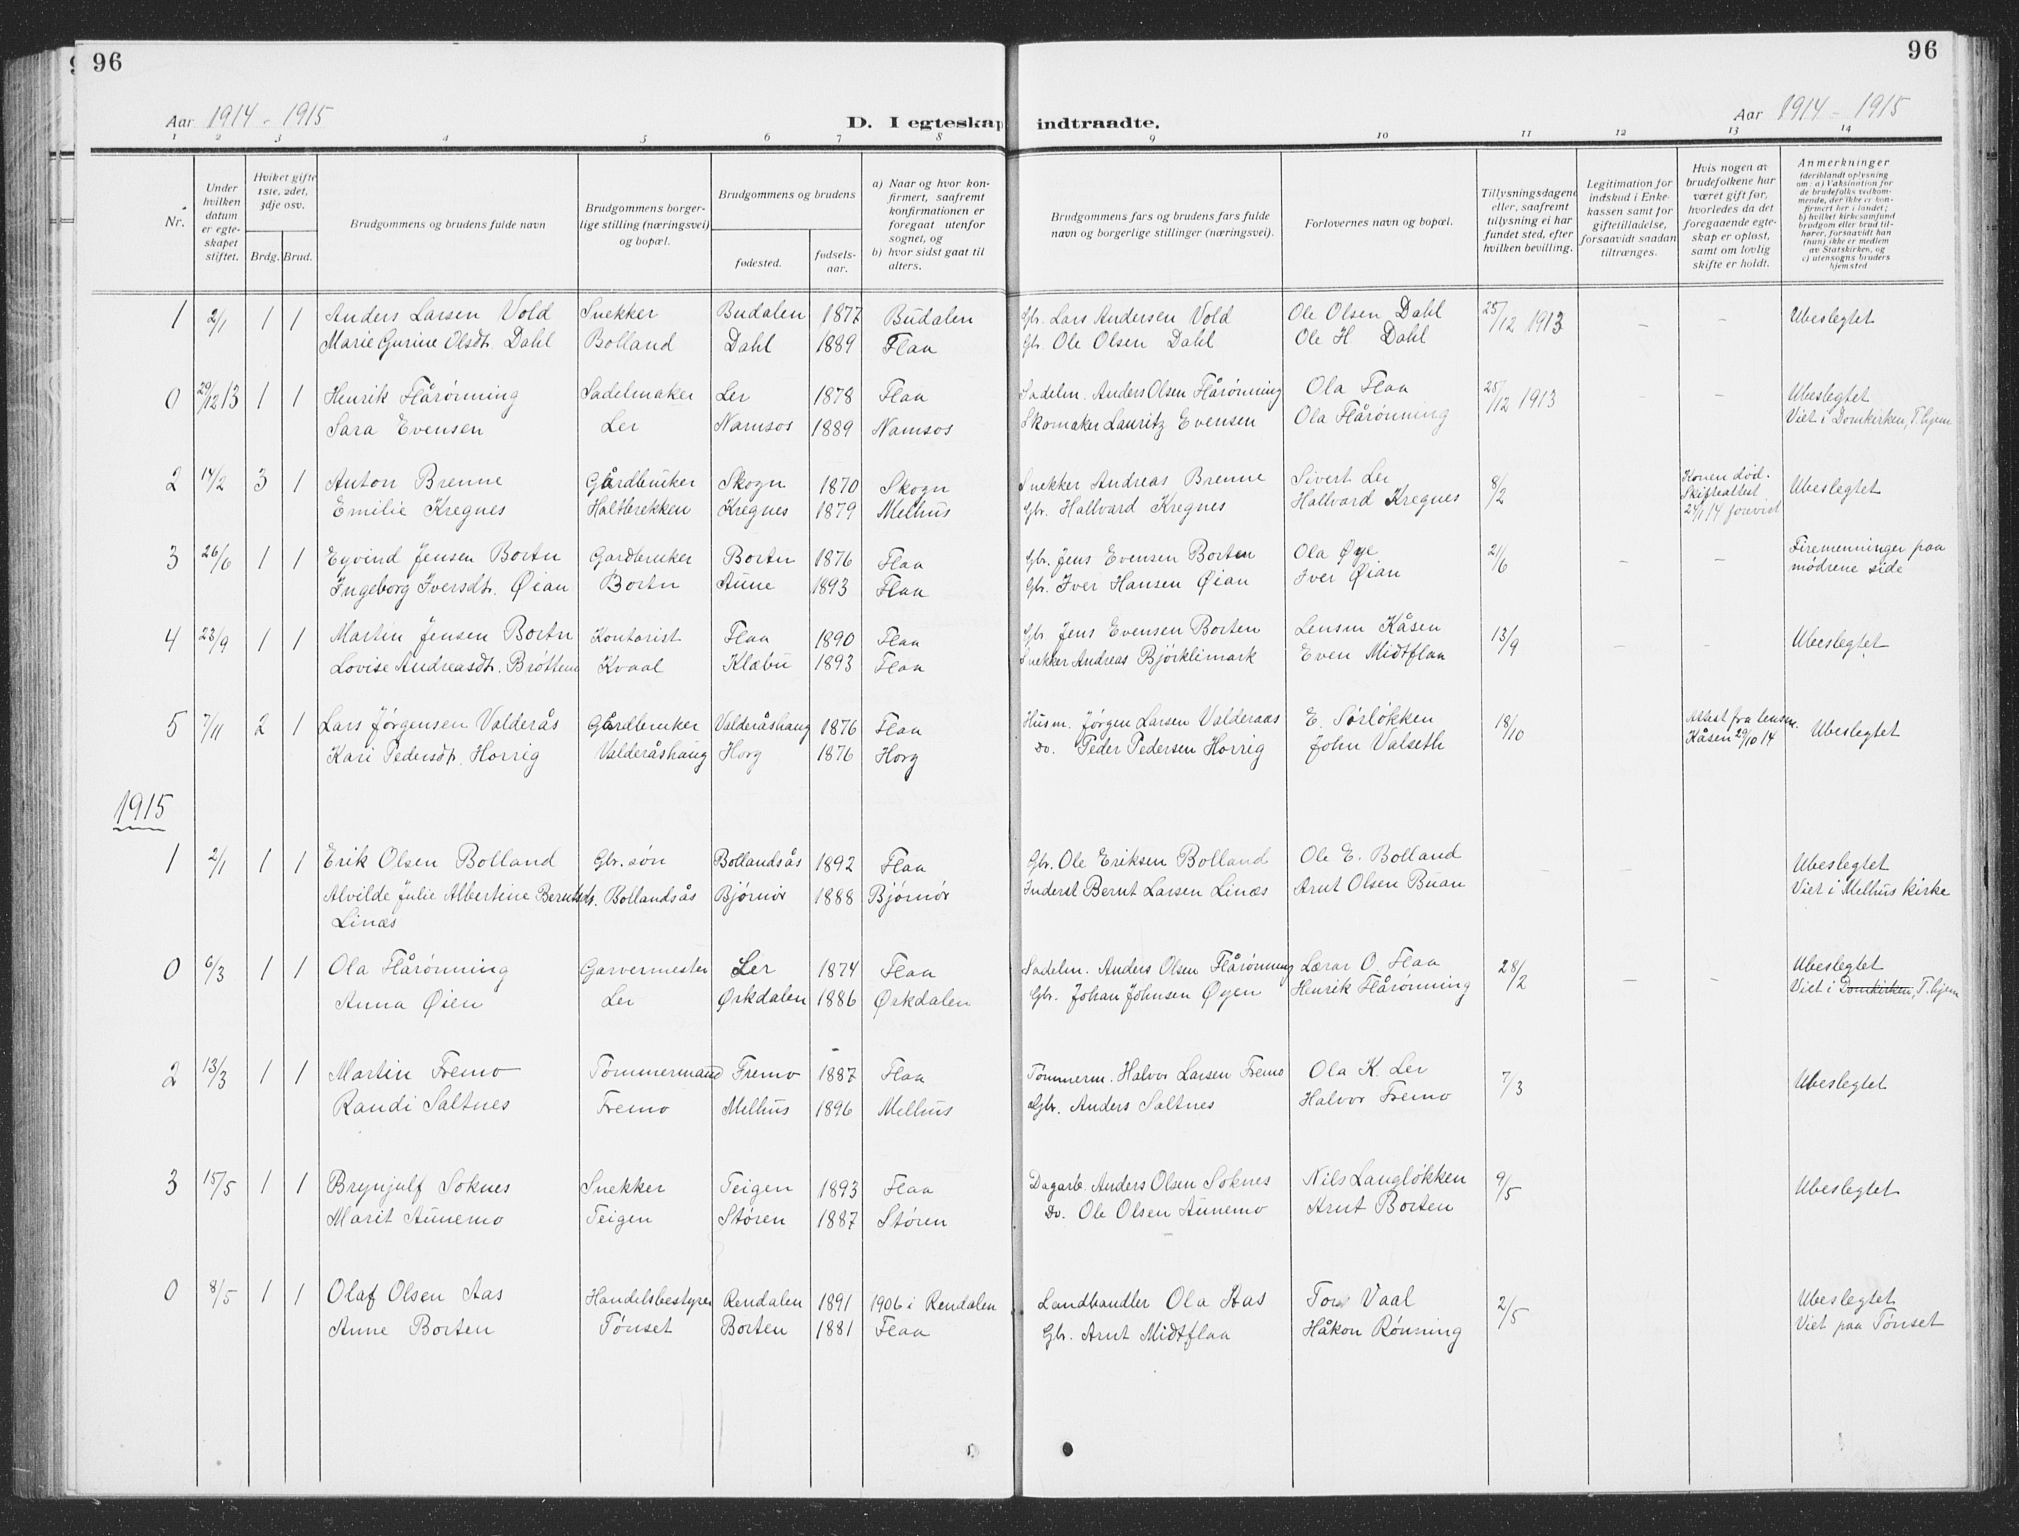 96
96
Aar 1914 - 1915
D. I egteskap indtraadte.
Aar 1914 - 1915
1 2 3 4 5 6 7 8 9 10 11 12 13 14
Nr.
Under hvilken datum er egteskapet stiftet.
Hviket gifte 1ste, 2det, 3dje osv.
Brdg. Brud.
Brudgommens og brudens fulde navn
Brudgommens borgerlige stilling (næringsvei) og bopæl.
Brudgommens og brudens
fødested.
fødselsaar.
a) Naar og hvor konfirmert, saafremt konfirmationen er foregaat utenfor sognet, og
b) hvor sidst gaat til alters.
Brudgommens fars og brudens fars fulde navn og borgerlige stillinger (næringsvei).
Forlovernes navn og bopæl.
Tillysningsdagene eller, saafremt tillysning ei har fundet sted, efter hvilken bevilling.
Legitimation for indskud i Enkekassen samt for giftetilladelse, forsaavidt saadan tiltrænges.
Hvis nogen av brudefolkene har været gift før, hvorledes da det foregaaende egteskap er opløst, samt om lovlig skifte er holdt.
Anmerkninger
(deriblandt oplysning om: a) Vaksination for de brudefolks vedkommende, der ikke er konfirmert her i landet; b) hvilket kirkesamfund brudgom eller brud tilhører, forsaavidt han (hun) ikke er medlem av Statskirken, og c) utensogns bruders hjemsted
1 2/1 1 1 Anders Larsen Vold Snekker Budalen 1877 Budalen Gbr. Lars Andersen Vold Ole Olsen Dahl 25/12 1913 - - Ubeslegtet
Marie Gurine Olsdt. Dahl Bolland Dahl 1889 Flaa Gbr. Ole Olsen Dahl Ole H Dahl
0 29/12 13 1 1 Henrik Flårønning Sadelmaker Ler 1878 Flaa Sadelm. Anders Olsen Flårønning Ola Flaa 25/12 1913 - - Ubeslegtet
Sara Evensen Ler Namsos 1889 Namsos Skomaker Lauritz Evensen Ola Flårønning Viet i Domkirken, T.hjem
2 14/2 3 1 Anton Brenne Gårdbruker Skogn 1870 Skogn Snekker Andreas Brenne Sivert Ler 8/2 Konen død. Ubeslegtet
Emilie Kregnes Haltbrekken Kregnes 1879 Melhus Gbr. Hallvard Kregnes Hallvard Kregnes Skifteattest
24/1 14 forevist
3 26/6 1 1 Eyvind Jensen Borten Gardbruker Borten 1876 Flaa Gbr. Jens Evensen Borten Ola Øye 21/6 - - Firemenninger paa
Ingeborg Iversdt. Øian Borten Aune 1893 Flaa Gbr. Iver Hansen Øian Iver Øian mødrene side
4 23/9 1 1 Martin Jensen Borten Kontorist Flaa 1890 Flaa Gbr Jens Evensen Borten Lensm Kåsen 13/9 - - Ubeslegtet
Lovise Andreasdt. Brøttem Kvaal Klæbu 1893 Flaa Snekker Andreas Bjørklimark Even Midtflaa
5 7/11 2 1 Lars Jørgensen Valderås Gårdbruker Valderåshaug 1876 Flaa Husm. Jørgen Larsen Valderaas E. Sørløkken 18/10 Attest fra lensm. Ubeslegtet
Kari Pedersdt. Horrig Valderåshaug Horg 1876 Horg Do. Peder Pedersen Horrig John Valseth Kåsen 29/10 14
1915
1 2/1 1 1 Erik Olsen Bolland Gbr. søn Bollandsås 1892 Flaa Gbr. Ole Eriksen Bolland Ole E. Bolland - - Ubeslegtet
Alvilde Julie Albertine Berntsdt. Bollandsås Bjørnør 1888 Bjørnør Inderst Bernt Larsen Linæs Arnt Olsen Buan Viet i Melhus kirke
Linæs
0 6/3 1 1 Ola Flårønning Garvermester Ler 1874 Flaa Sadelm. Anders Olsen Flårønning Lærar O. Flaa 28/2 - - Ubeslegtet
Anna Øien Ler Ørkdalen 1886 Ørkdalen Gbr. Johan Johnsen Øyen Henrik Flårønning Viet i Domkirken, T.hjem
2 13/3 1 1 Martin Fremo Tømmermand Fremo 1887 Flaa Tømmerm. Halvor Larsen Fremo Ola K. Ler 7/3 Ubeslegtet
Randi Saltnes Fremo Melhus 1896 Melhus Gbr. Anders Saltnes Halvor Fremo
3 15/5 1 1 Brynjulf Soknes Snekker Teigen 1893 Flaa Dagarb. Anders Olsen Soknes Nils Langløkken 9/5 Ubeslegtet
Marit Aunemo Teigen Støren 1887 Støren Do. Ole Olsen Aunemo Arnt Borten
0 8/5 1 1 Olaf Olsen Aas Handelsbestyrer Rendalen 1891 1906 i Rendalen Landhandler Ola Aas Tore Vaal 2/5 Ubeslegtet
Anne Borten Tønset Borten 1881 Flaa Gbr. Arnt Midtflaa Håkon Rønning Viet paa Tønset